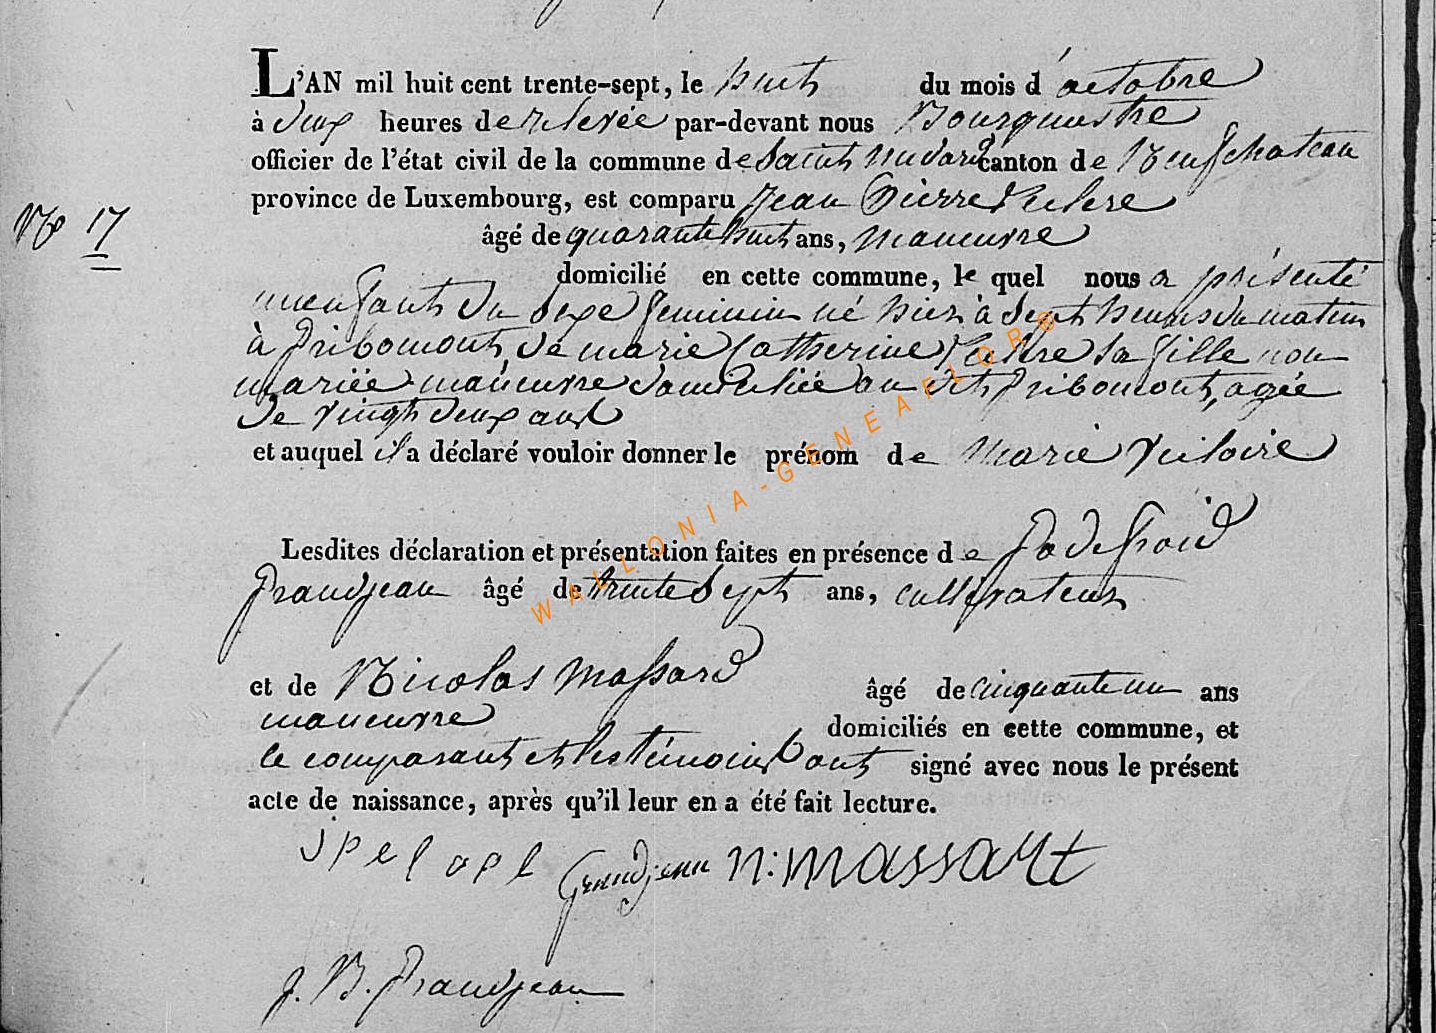 L'AN mil huit cent trente-sept, le huit du mois d'octobre
à deux heures de relevée par-devant nous Bourguestre
officier de l'état civil de la commune de Saint Medard canton de Neufchateau
province de Luxembourg, est comparu Jean Pierre
N° 17
âgé de quarante huit ans, maneuvre
domicilié en cette commune, lequel nous a présenté
un enfant du sexe feminin né hier à sept heures du matin
à Pribomont, de marie Catherine sa fille non
mariée maneuvre domiciliée au dit Pribomont, agée
de vingt deux ans
et auquel il a déclaré vouloir donner le prénom de Marie Victoire
WALLONIA-GENEAFLOR®
Lesdites déclaration et présentation faites en présence de Godefroid
Grandjean âgé de trente sept ans, cultivateur
et de Nicolas Massard âgé de cinquante un ans
maneuvre domiciliés en cette commune, et
le comparant et les témoins ont signé avec nous le présent
acte de naissance, après qu'il leur en a été fait lecture.
Grandjean N: Massart
J. B. Grandjean